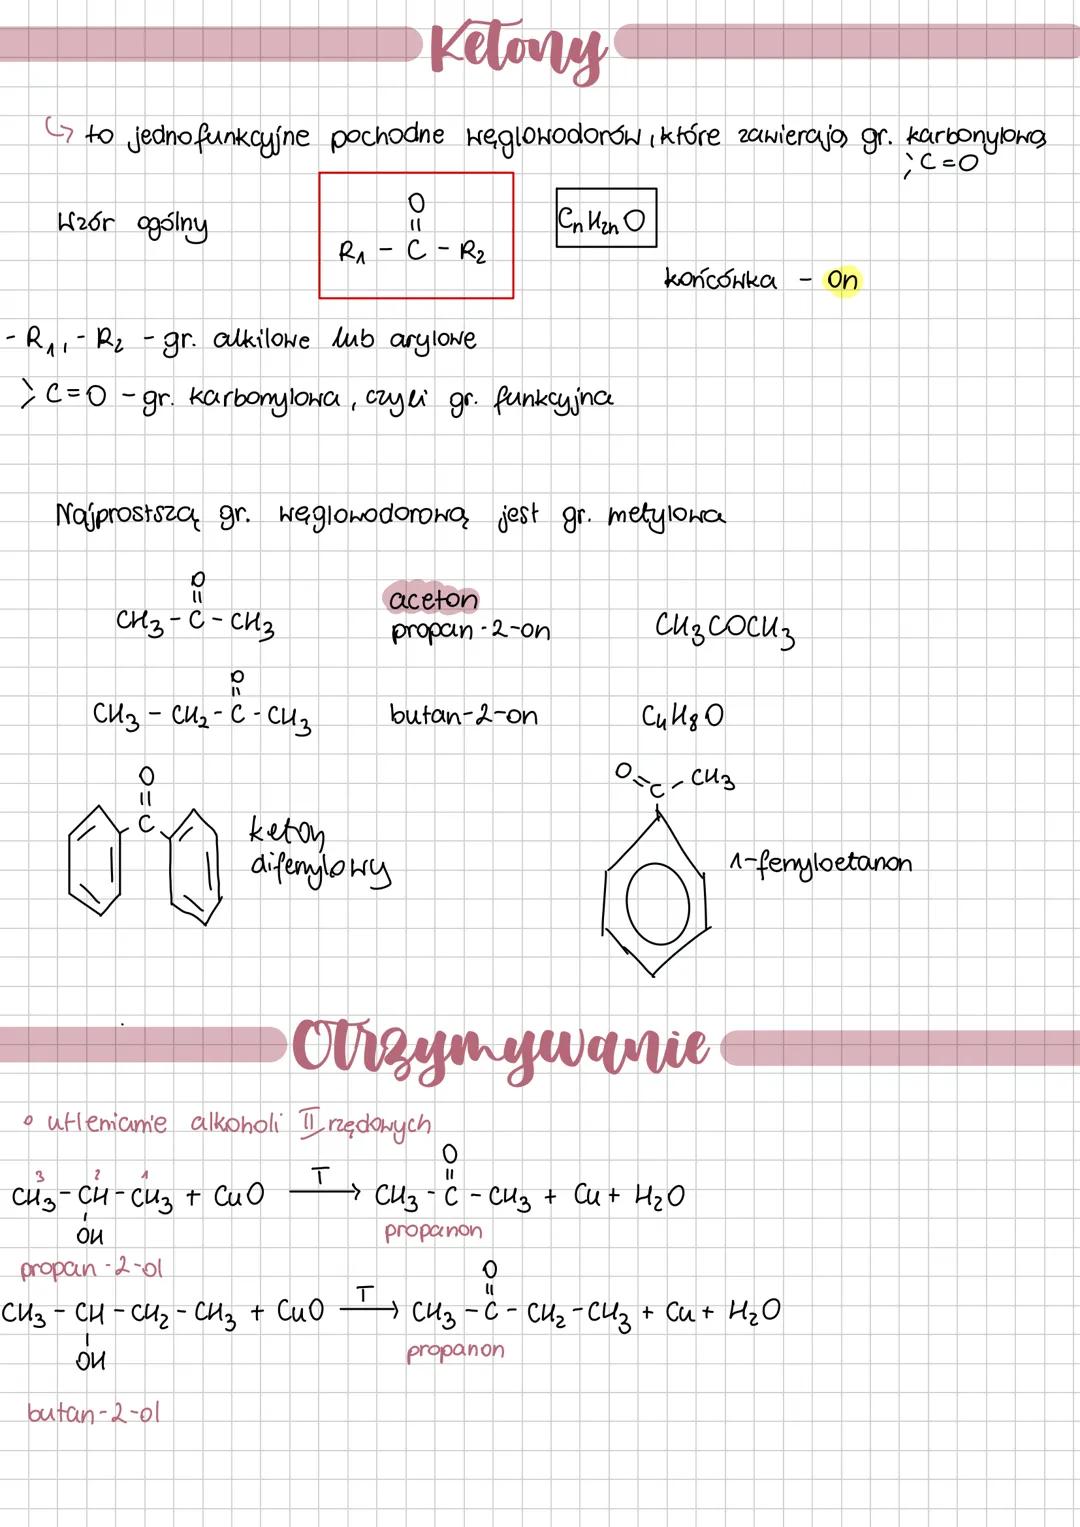 Ketony
↳ to jednofunkcyjne pochodne węglowodorów, które zawierają gr. karbonylową
>C=O
Wzór ogólny
O
||
R₁ - C - R₂
CnH2nO
końcówka - on
-R₁, -R₂ - gr. alkilowe lub arylowe
>C=O - gr. karbonylowa, czyli gr. funkcyjna
Najprostszą gr. węglowodorową jest gr. metylowa
O
||
CH₃ - C - CH₃
aceton
propan-2-on
CH₃COCH₃
O
||
CH₃ - CH₂ - C - CH₃
butan-2-on
C₄H₈O
O
||
C
keton
difenylowy
O=C-CH₃
1-fenyloetanon
Otrzymywanie
• utlenianie alkoholi II rzędowych
3 2 1
O
||
CH₃ - CH - CH₃ + CuO T→ CH₃ - C - CH₃ + Cu + H₂O
OH
propanon
propan-2-ol
O
||
CH₃ - CH - CH₂ - CH₃ + CuO T→ CH₃ - C - CH₂ - CH₃ + Cu + H₂O
OH
propanon
butan-2-ol